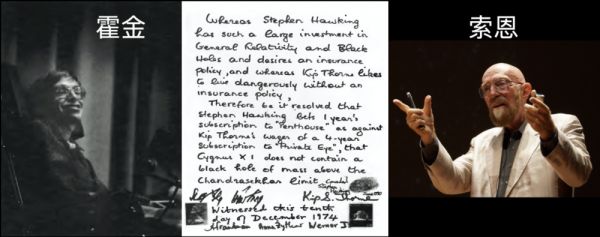 霍金
Whereas Stephen Hawking
has such a large investment in
General Relativity and Black
Holes and desires an insurance
policy, and whereas Kip Thorne likes
to live dangerously without an
insurance policy,
Therefore be it resolved that
Stephen Hawking bets 1 year's
subscription to "Penthouse" as against
Kip Thorne's wager of a 4-year
subscription to "Private Eye", that
Cygnus X 1 does not contain a
black hole of mass above the
Chandrasekhar limit.
Kip S. Thorne
Witnessed this tenth
day of December 1974
Anna Żytkow Werner
索恩